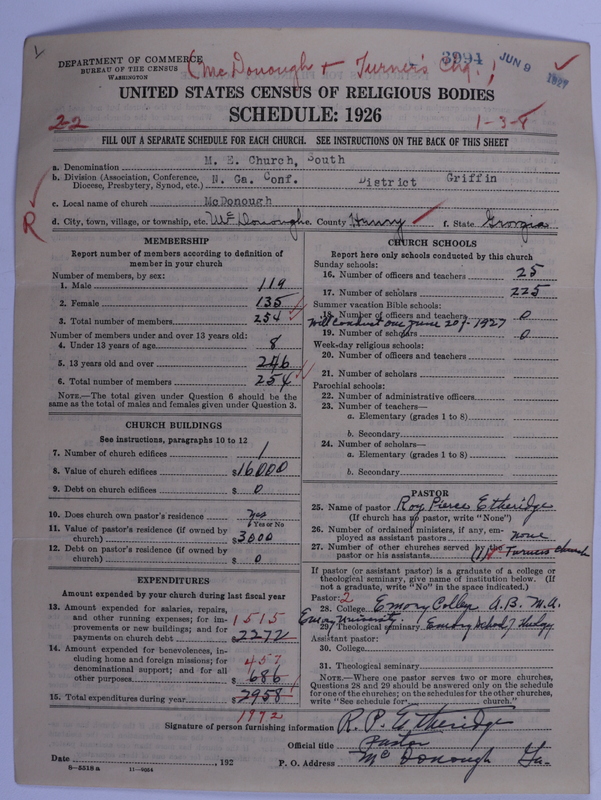 1
DEPARTMENT OF COMMERCE
BUREAU OF THE CENSUS
WASHINGTON
(McDonough & Turner's Chg.,)
3994
JUN 9 1927
UNITED STATES CENSUS OF RELIGIOUS BODIES
SCHEDULE: 1926
2-2
1-3-8
FILL OUT A SEPARATE SCHEDULE FOR EACH CHURCH. SEE INSTRUCTIONS ON THE BACK OF THIS SHEET
a. Denomination M. E. Church, South
b. Division (Association, Conference, Diocese, Presbytery, Synod, etc.) N. Ga. Conf. District Griffin
c. Local name of church McDonough
R
d. City, town, village, or township, etc. McDonough e. County Henry f. State Georgia
MEMBERSHIP
Report number of members according to definition of
member in your church
Number of members, by sex:
1. Male 119
2. Female 135
3. Total number of members 254
Number of members under and over 13 years old:
4. Under 13 years of age 8
5. 13 years old and over 246
6. Total number of members 254
NOTE.—The total given under Question 6 should be the
same as the total of males and females given under Question 3.
CHURCH BUILDINGS
See instructions, paragraphs 10 to 12
7. Number of church edifices 1
8. Value of church edifices $16000
9. Debt on church edifices $ 0
10. Does church own pastor's residence yes
Yes or No
11. Value of pastor's residence (if owned by
church) $3000
12. Debt on pastor's residence (if owned by
church) $ 0
EXPENDITURES
Amount expended by your church during last fiscal year
13. Amount expended for salaries, repairs,
and other running expenses; for im-
provements or new buildings; and for
payments on church debt $2272
1515
14. Amount expended for benevolences, in-
cluding home and foreign missions; for
denominational support; and for all
other purposes $686
457
15. Total expenditures during year $2958
1992
CHURCH SCHOOLS
Report here only schools conducted by this church
Sunday schools:
16. Number of officers and teachers 25
17. Number of scholars 225
Summer vacation Bible schools:
18. Number of officers and teachers 0
will conduct one June 20, 1927
19. Number of scholars 0
Week-day religious schools:
20. Number of officers and teachers
21. Number of scholars
Parochial schools:
22. Number of administrative officers
23. Number of teachers—
a. Elementary (grades 1 to 8)
b. Secondary
24. Number of scholars—
a. Elementary (grades 1 to 8)
b. Secondary
PASTOR
25. Name of pastor Roy Pierce Etheridge
(If church has no pastor, write "None")
26. Number of ordained ministers, if any, em-
ployed as assistant pastors none
27. Number of other churches served by the
pastor or his assistants (1) Turners church
If pastor (or assistant pastor) is a graduate of a college or
theological seminary, give name of institution below. (If
not a graduate, write "No" in the space indicated.)
Pastor: 2
28. College Emory College A.B. M.A.
Emory University
29. Theological seminary Emory School Theology
Assistant pastor:
30. College
31. Theological seminary
NOTE.—Where one pastor serves two or more churches,
Questions 28 and 29 should be answered only on the schedule
for one of the churches; on the schedules for the other churches,
write "See schedule for church."
Signature of person furnishing information R. P. Etheridge
Official title Pastor
Date , 192 P. O. Address McDonough Ga.
8—5518 a 11—9064